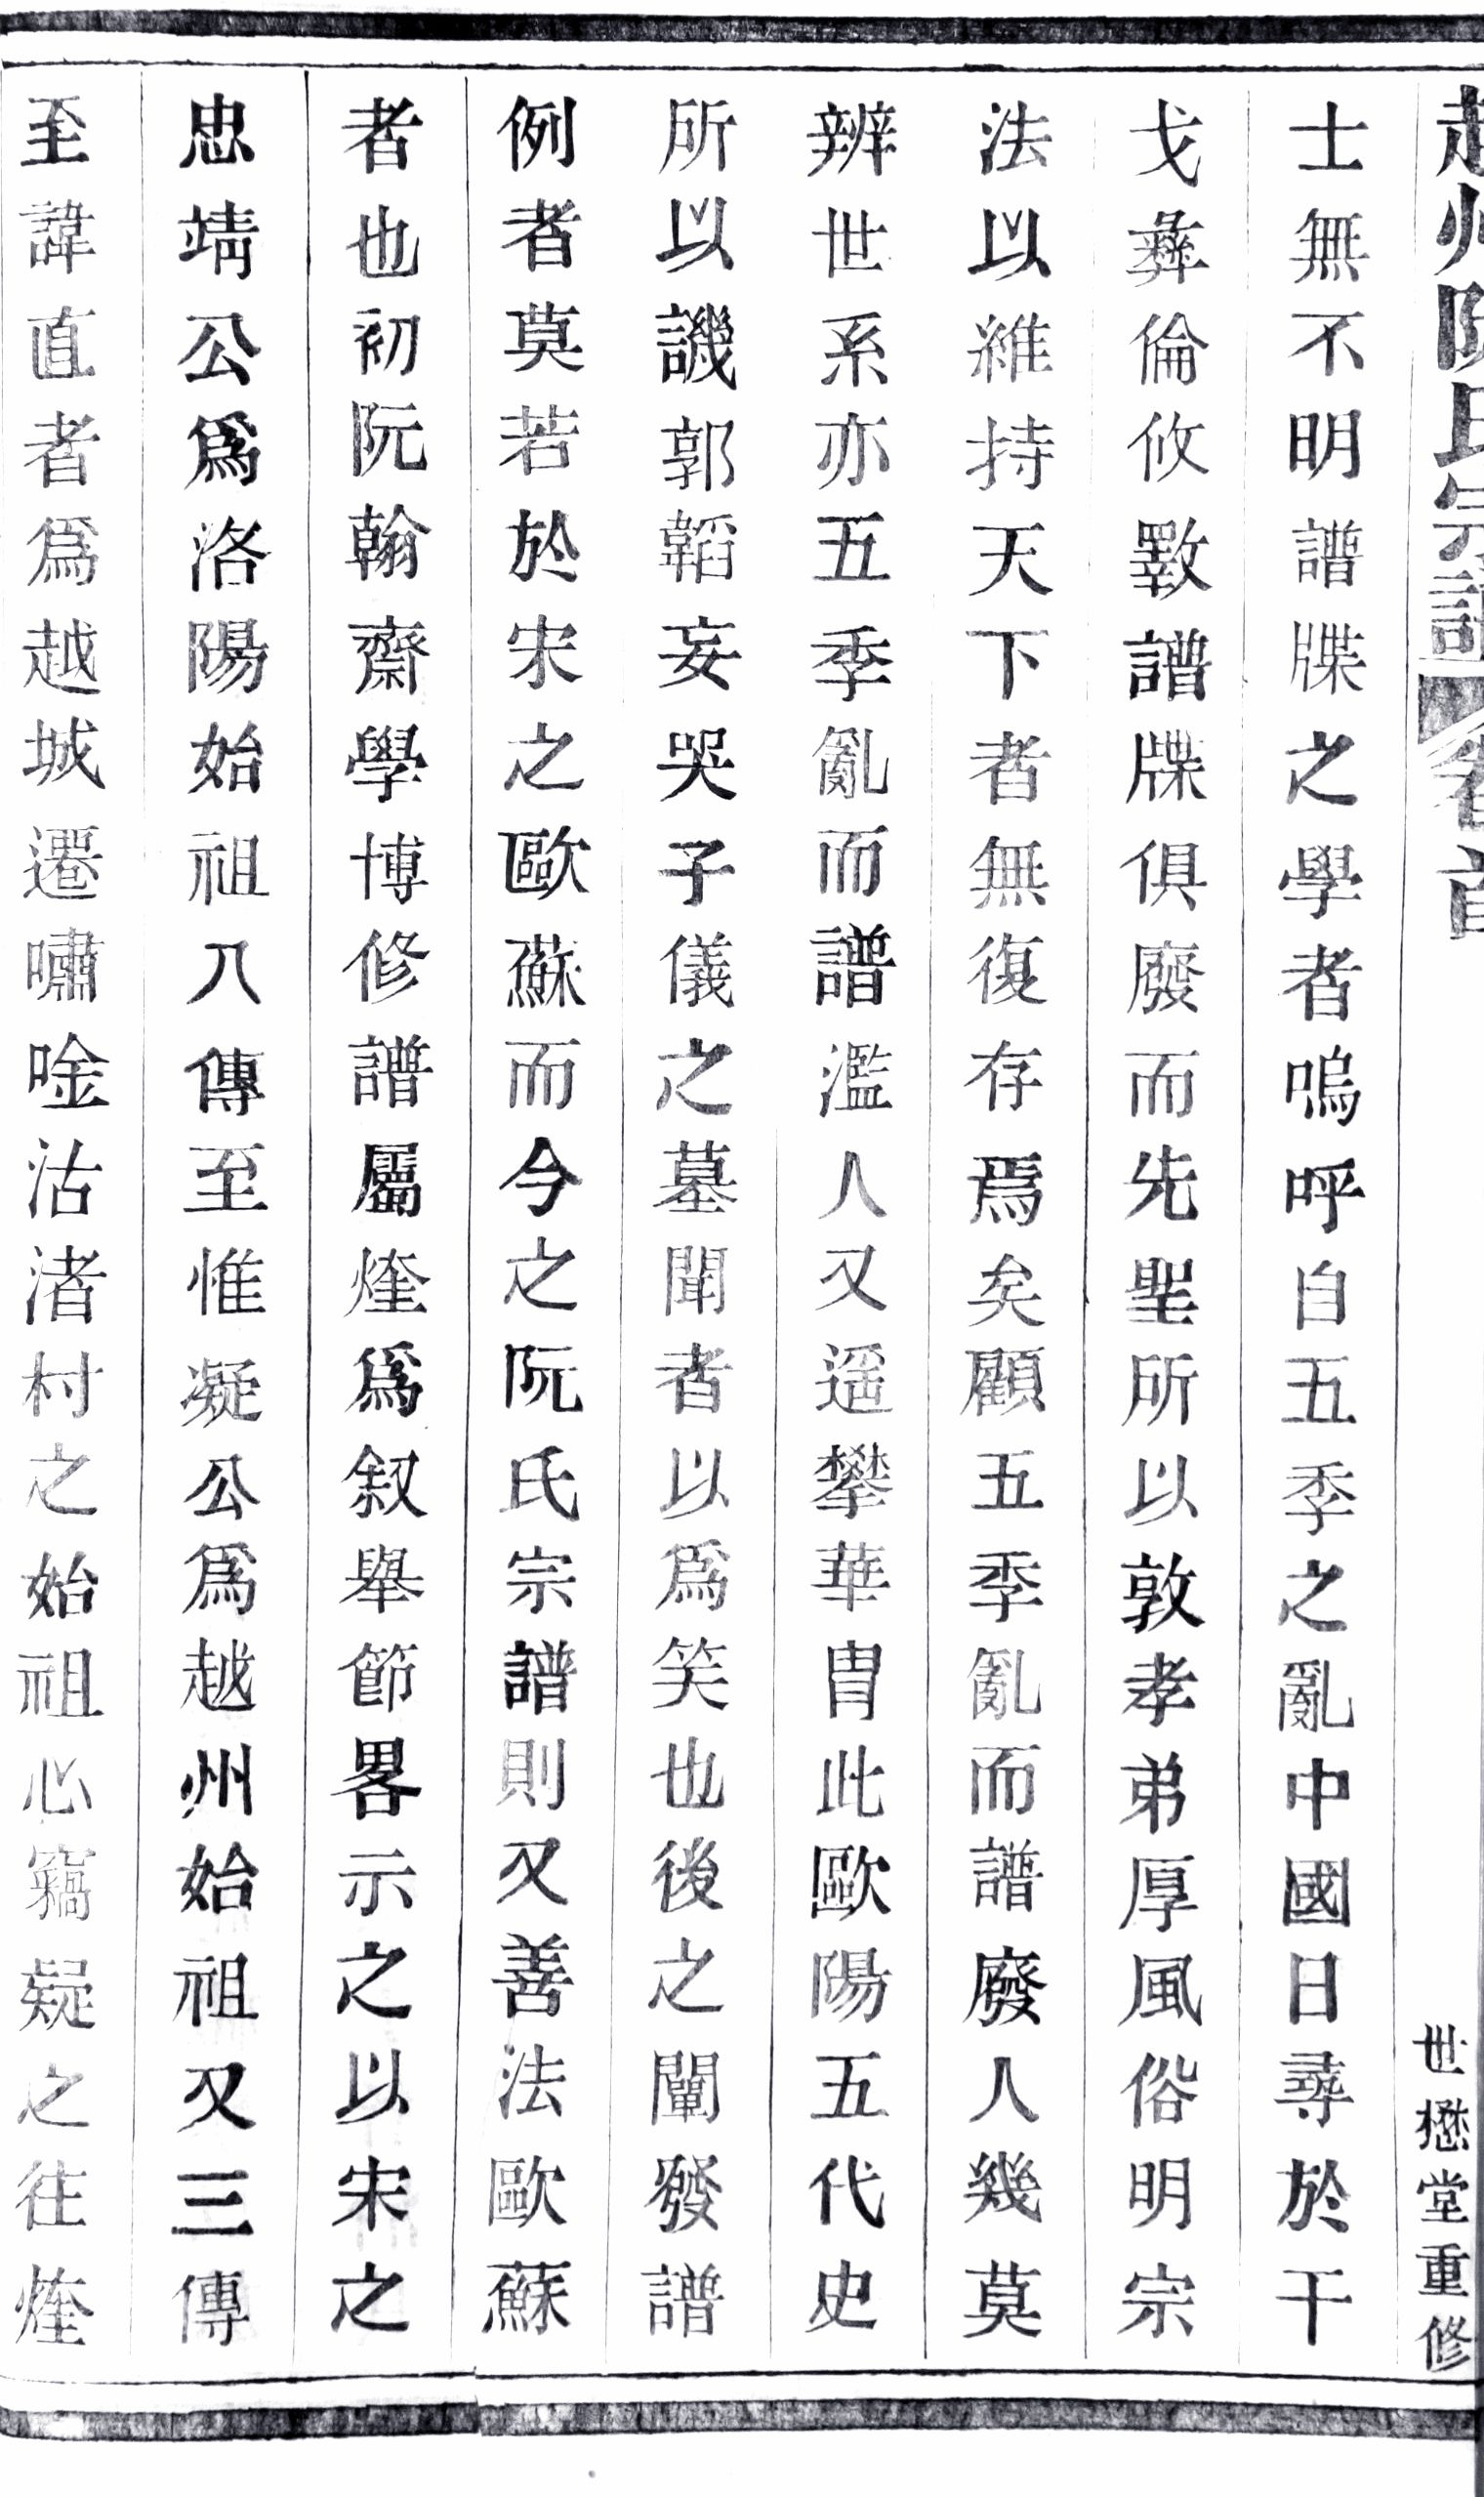 越州阮氏宗譜 卷首 世懋堂重修
士無不明譜牒之學者嗚呼自五季之亂中國日尋於干
戈彝倫攸斁譜牒俱廢而先聖所以敦孝弟厚風俗明宗
法以維持天下者無復存焉矣顧五季亂而譜廢人幾莫
辨世系亦五季亂而譜濫人又遥攀華胄此歐陽五代史
所以譏郭韜妄哭子儀之墓聞者以爲笑也後之闡發譜
例者莫若於宋之歐蘇而今之阮氏宗譜則又善法歐蘇
者也初阮翰齋學博修譜屬烽爲叙舉節畧示之以宋之
忠靖公爲洛陽始祖八傳至惟凝公爲越州始祖又三傳
至諱直者爲越城遷嘯唫沽渚村之始祖心竊疑之往烽